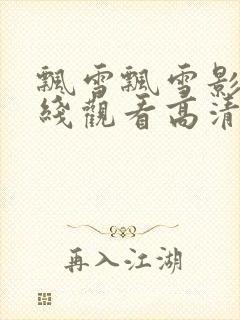 飄雪飄雪影
綫觀看高清
再入江湖